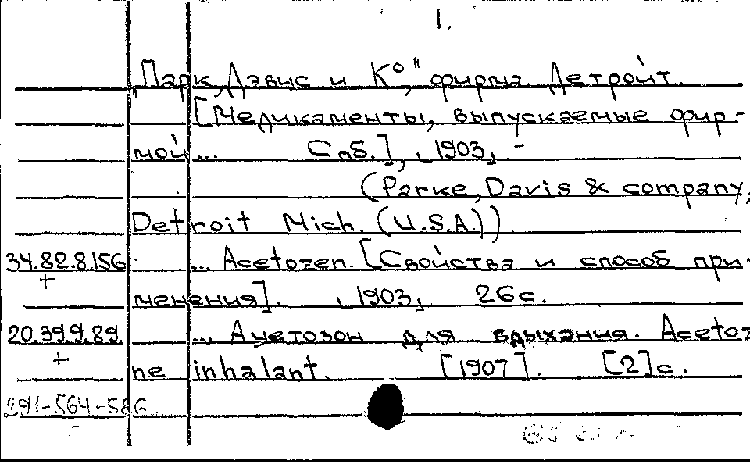 1.
„Парк, Дэвис и К°", фирма Детройт.
[Медикаменты, выпускаемые фир-
мой ... Спб.], 1903, -
(Parke, Davis & company,
Detroit Mich. (U.S.A.))
34.82.8.156 ... Acetozen. [Свойства и способ при-
+
менения]. , 1903, 26с.
20.39.9.89. ... Ацетозон для вдыхания. Acetoz
+
ne inhalant. [1907]. [2]с.
291-564-586